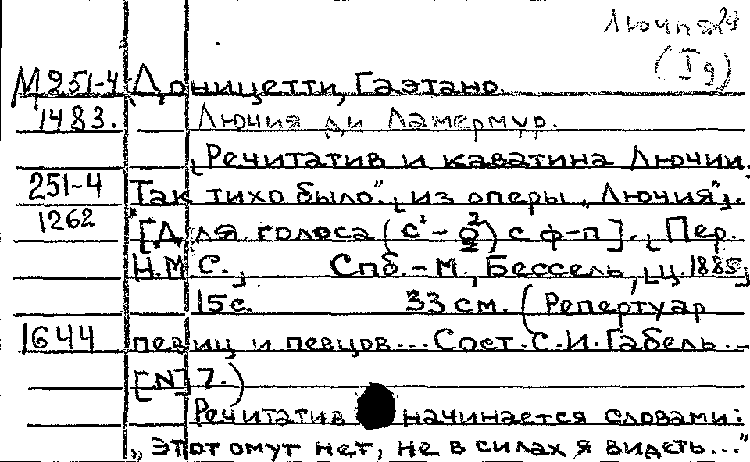 Лючия
(Iд)
М251-4 Доницетти, Гаэтано.
1483. Лючия ди Ламермур.
Речитатив и каватина Лючии.
251-4 Так тихо было". [из оперы „Лючия"].
1262 [Для голоса (c¹-a²) с ф-п]. [Пер.
Н.М С.] Спб.-М., Бессель, [ц. 1885]
15с. 33 см. (Репертуар
1644 певиц и певцов... Сост. С.И. Габель.-
[N] 7.)
Речитатив начинается словами:
„Этот омут нет, не в силах я видеть..."